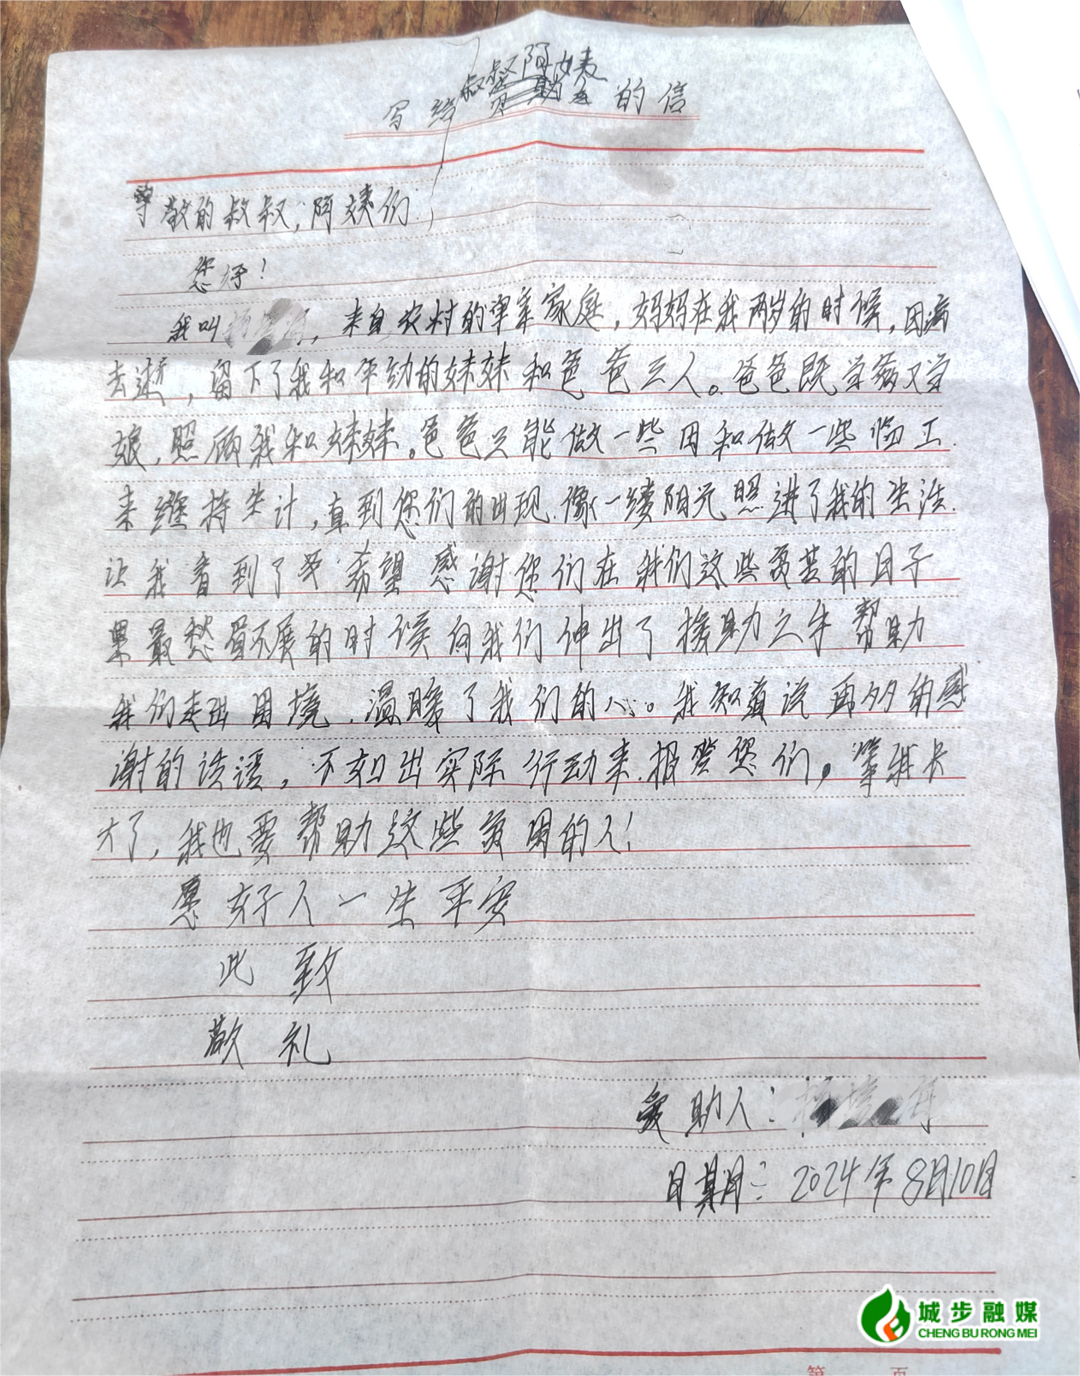 写给叔叔阿姨的信
尊敬的叔叔,阿姨们,
您好!
我叫 ,来自农村的单亲家庭,妈妈在我两岁的时候,因病
去逝,留下了我和年幼的妹妹和爸爸三人。爸爸既当爹又当
娘,照顾我和妹妹。爸爸只能做一些 和做一些临工
来维持生计,直到您们的出现.像一缕阳光照进了我的生活.
让我看到了 希望 感谢您们在我们这些贫苦的日子
里最愁眉不展的时候向我们伸出了援助之手 帮助
我们走出困境.温暖了我们的心。我知道说再多的感
谢的话语,不如出实际行动来.报答您们,等我长
大了,我也要帮助这些贫困的人!
愿好人一生平安
此致
敬礼
受助人:
日期:2024年8月10日
城步融媒
CHENG BU RONG MEI
第 页